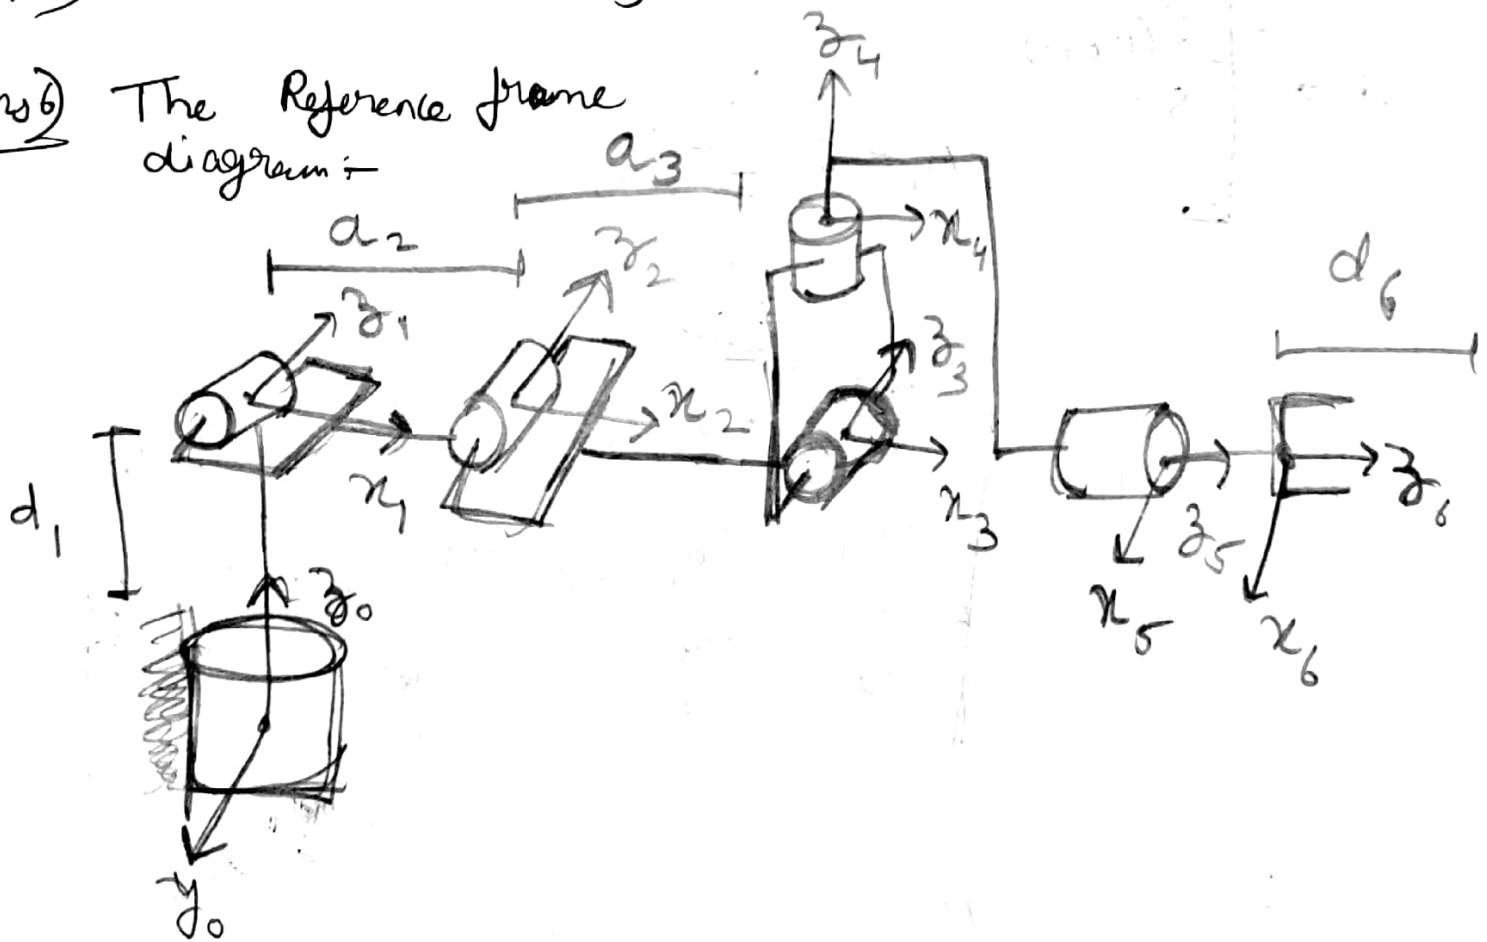 ns6) The Reference frame
diagram :-
z₄
a₃
a₂
z₂
x₄
d₆
z₁
z₃
x₂
x₁
x₃
z₆
d₁
z₅
z₀
x₅
x₆
y₀